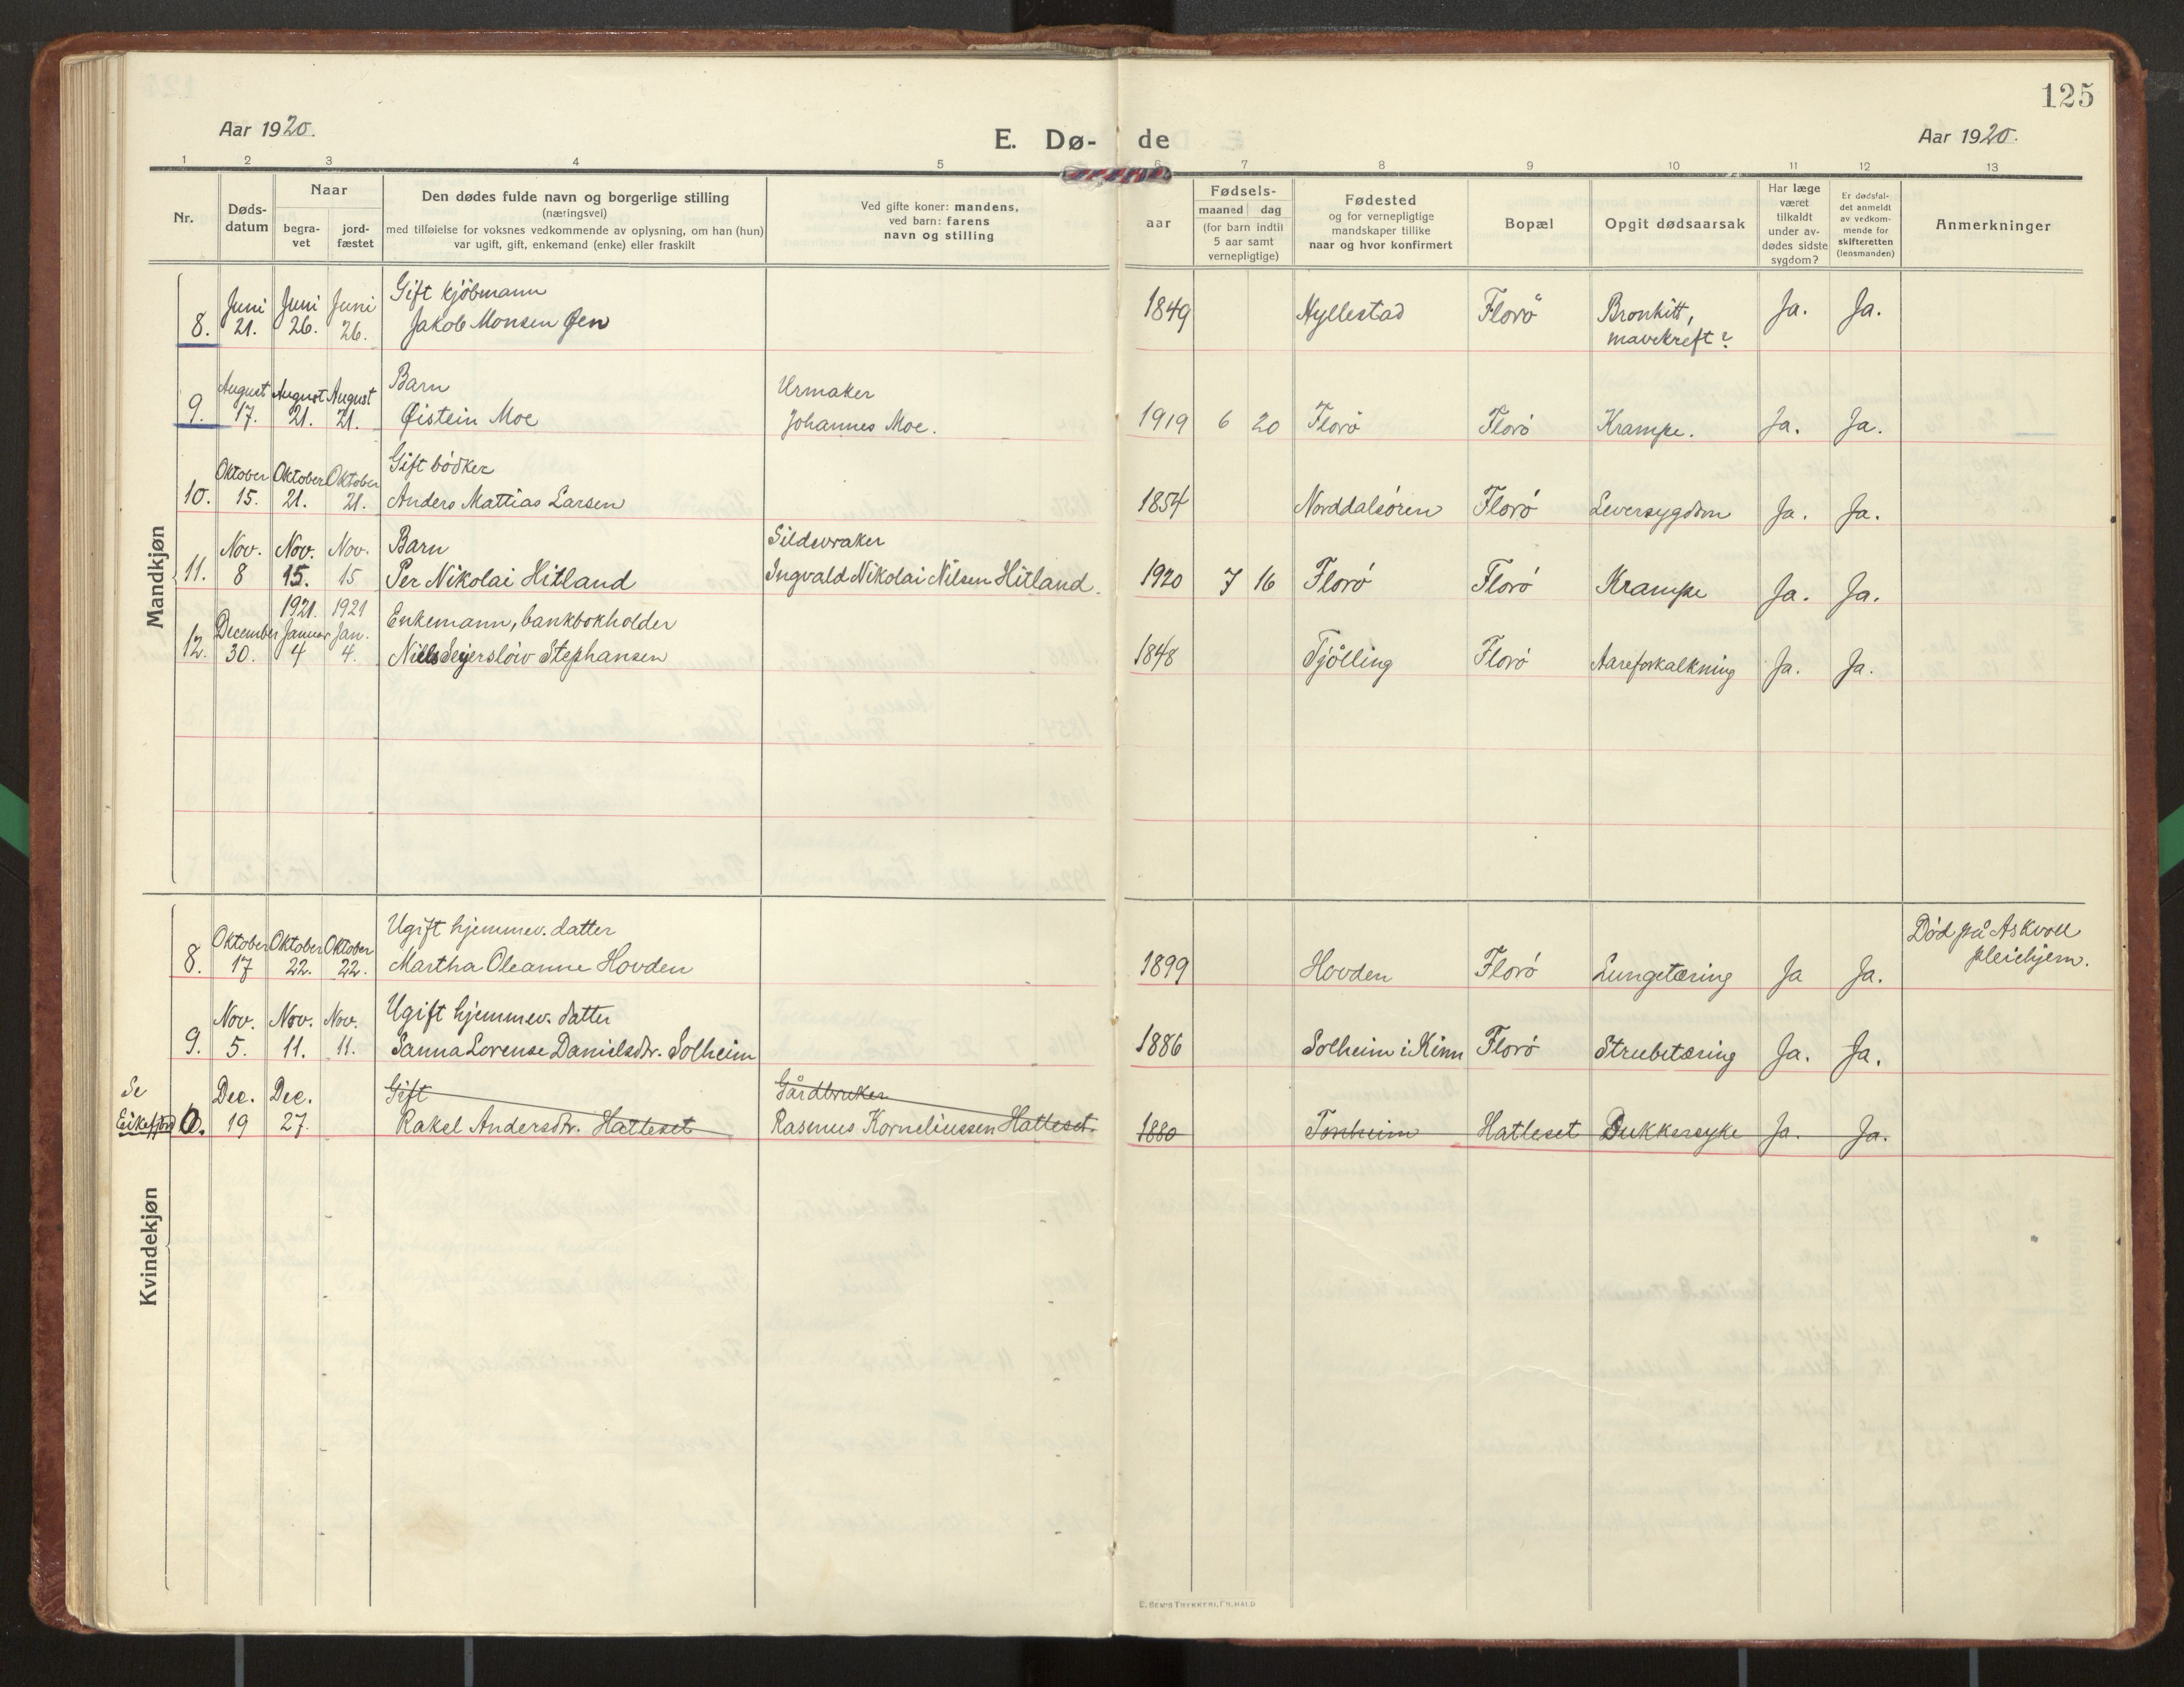 125
Aar 1920.
E. Dø- de
Aar 1920.
1 2 3 4 5 6 7 8 9 10 11 12 13
Nr.
Døds-
datum
Naar
begra-
vet
jord-
fæstet
Den dødes fulde navn og borgerlige stilling
(næringsvei)
med tilføielse for voksnes vedkommende av oplysning, om han (hun)
var ugift, gift, enkemand (enke) eller fraskilt
Ved gifte koner: mandens,
ved barn: farens
navn og stilling
aar
Fødsels-
maaned dag
(for barn indtil
5 aar samt
vernepligtige)
Fødested
og for vernepligtige
mandskaper tillike
naar og hvor konfirmert
Bopæl
Opgit dødsaarsak
Har læge
været
tilkaldt
under av-
dødes sidste
sygdom?
Er dødsfal-
det anmeldt
av vedkom-
mende for
skifteretten
(lensmanden)
Anmerkninger
Mandkjøn
Juni Juni Juni Gift kjøbmann
8. 21. 26. 26. Jakob Monsen Øen 1849 Hyllestad Florö Bronkitt, Ja. Ja.
mavekreft?
August August August Barn Urmaker
9. 17. 21. 21. Øistein Moe Johannes Moe. 1919 6 20 Florö Florö Krampe. Ja. Ja.
Oktober Oktober Oktober Gift bödker
10. 15. 21. 21. Anders Mattias Larsen 1854 Norddalsören Florö Leversygdom Ja. Ja.
Nov. Nov. Nov. Barn Sildevraker
11. 8 15. 15 Per Nikolai Hitland Ingvald Nikolai Nilsen Hitland. 1920 7 16 Florö Florö Krampe Ja. Ja.
1921. 1921
December Januar Jan. Enkemann, bankbokholder
12. 30. 4 4. Niels Sejerslöiv Stephansen 1848 Tjölling Florö Aareforkalkning Ja. Ja.
Kvindekjøn
Oktober Oktober Oktober Ugift hjemmev. datter Död på Askvoll
8. 17 22. 22. Martha Oleanne Hovden 1899 Hovden Florö Lungetæring Ja Ja. pleiehjem.
Nov. Nov. Nov. Ugift hjemmev. datter
9. 5. 11. 11. Sanna Lorense Danielsdtr. Solheim 1886 Solheim i Kinn Florö Strubetæring Ja. Ja.
Se Dec. Dec. Gift Gårdbruker
Eikefjord 10. 19 27. Rakel Andersdtr. Hatleset Rasmus Korneliussen Hatleset. 1880 Tonheim Hatleset Sukkersyke Ja. Ja.
E. SEM'S TRYKKERI, FR.HALD